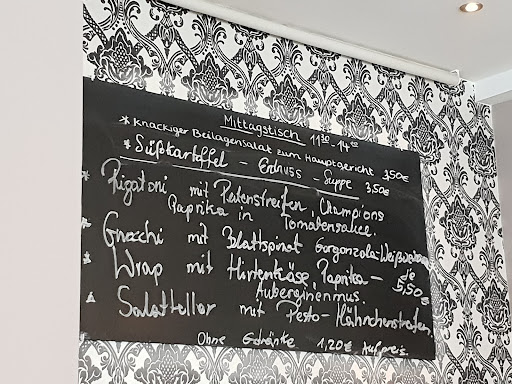 Mittagstisch 11³⁰-14⁰⁰
* Knackiger Beilagensalat zum Hauptgericht 3,50€
* Süßkartoffel - Erdnuss - Suppe 3,50€
* Rigatoni mit Putenstreifen, Champions
Paprika in Tomatensauce.
* Gnocchi mit Blattspinat Gorgonzola-Weißwein
* Wrap mit Hirtenkäse, Paprika-
Auberginenmus
je 5,50€
* Salatteller mit Pesto-Hähnchenstreifen
Ohne Getränke 1,20€ Aufpreis.